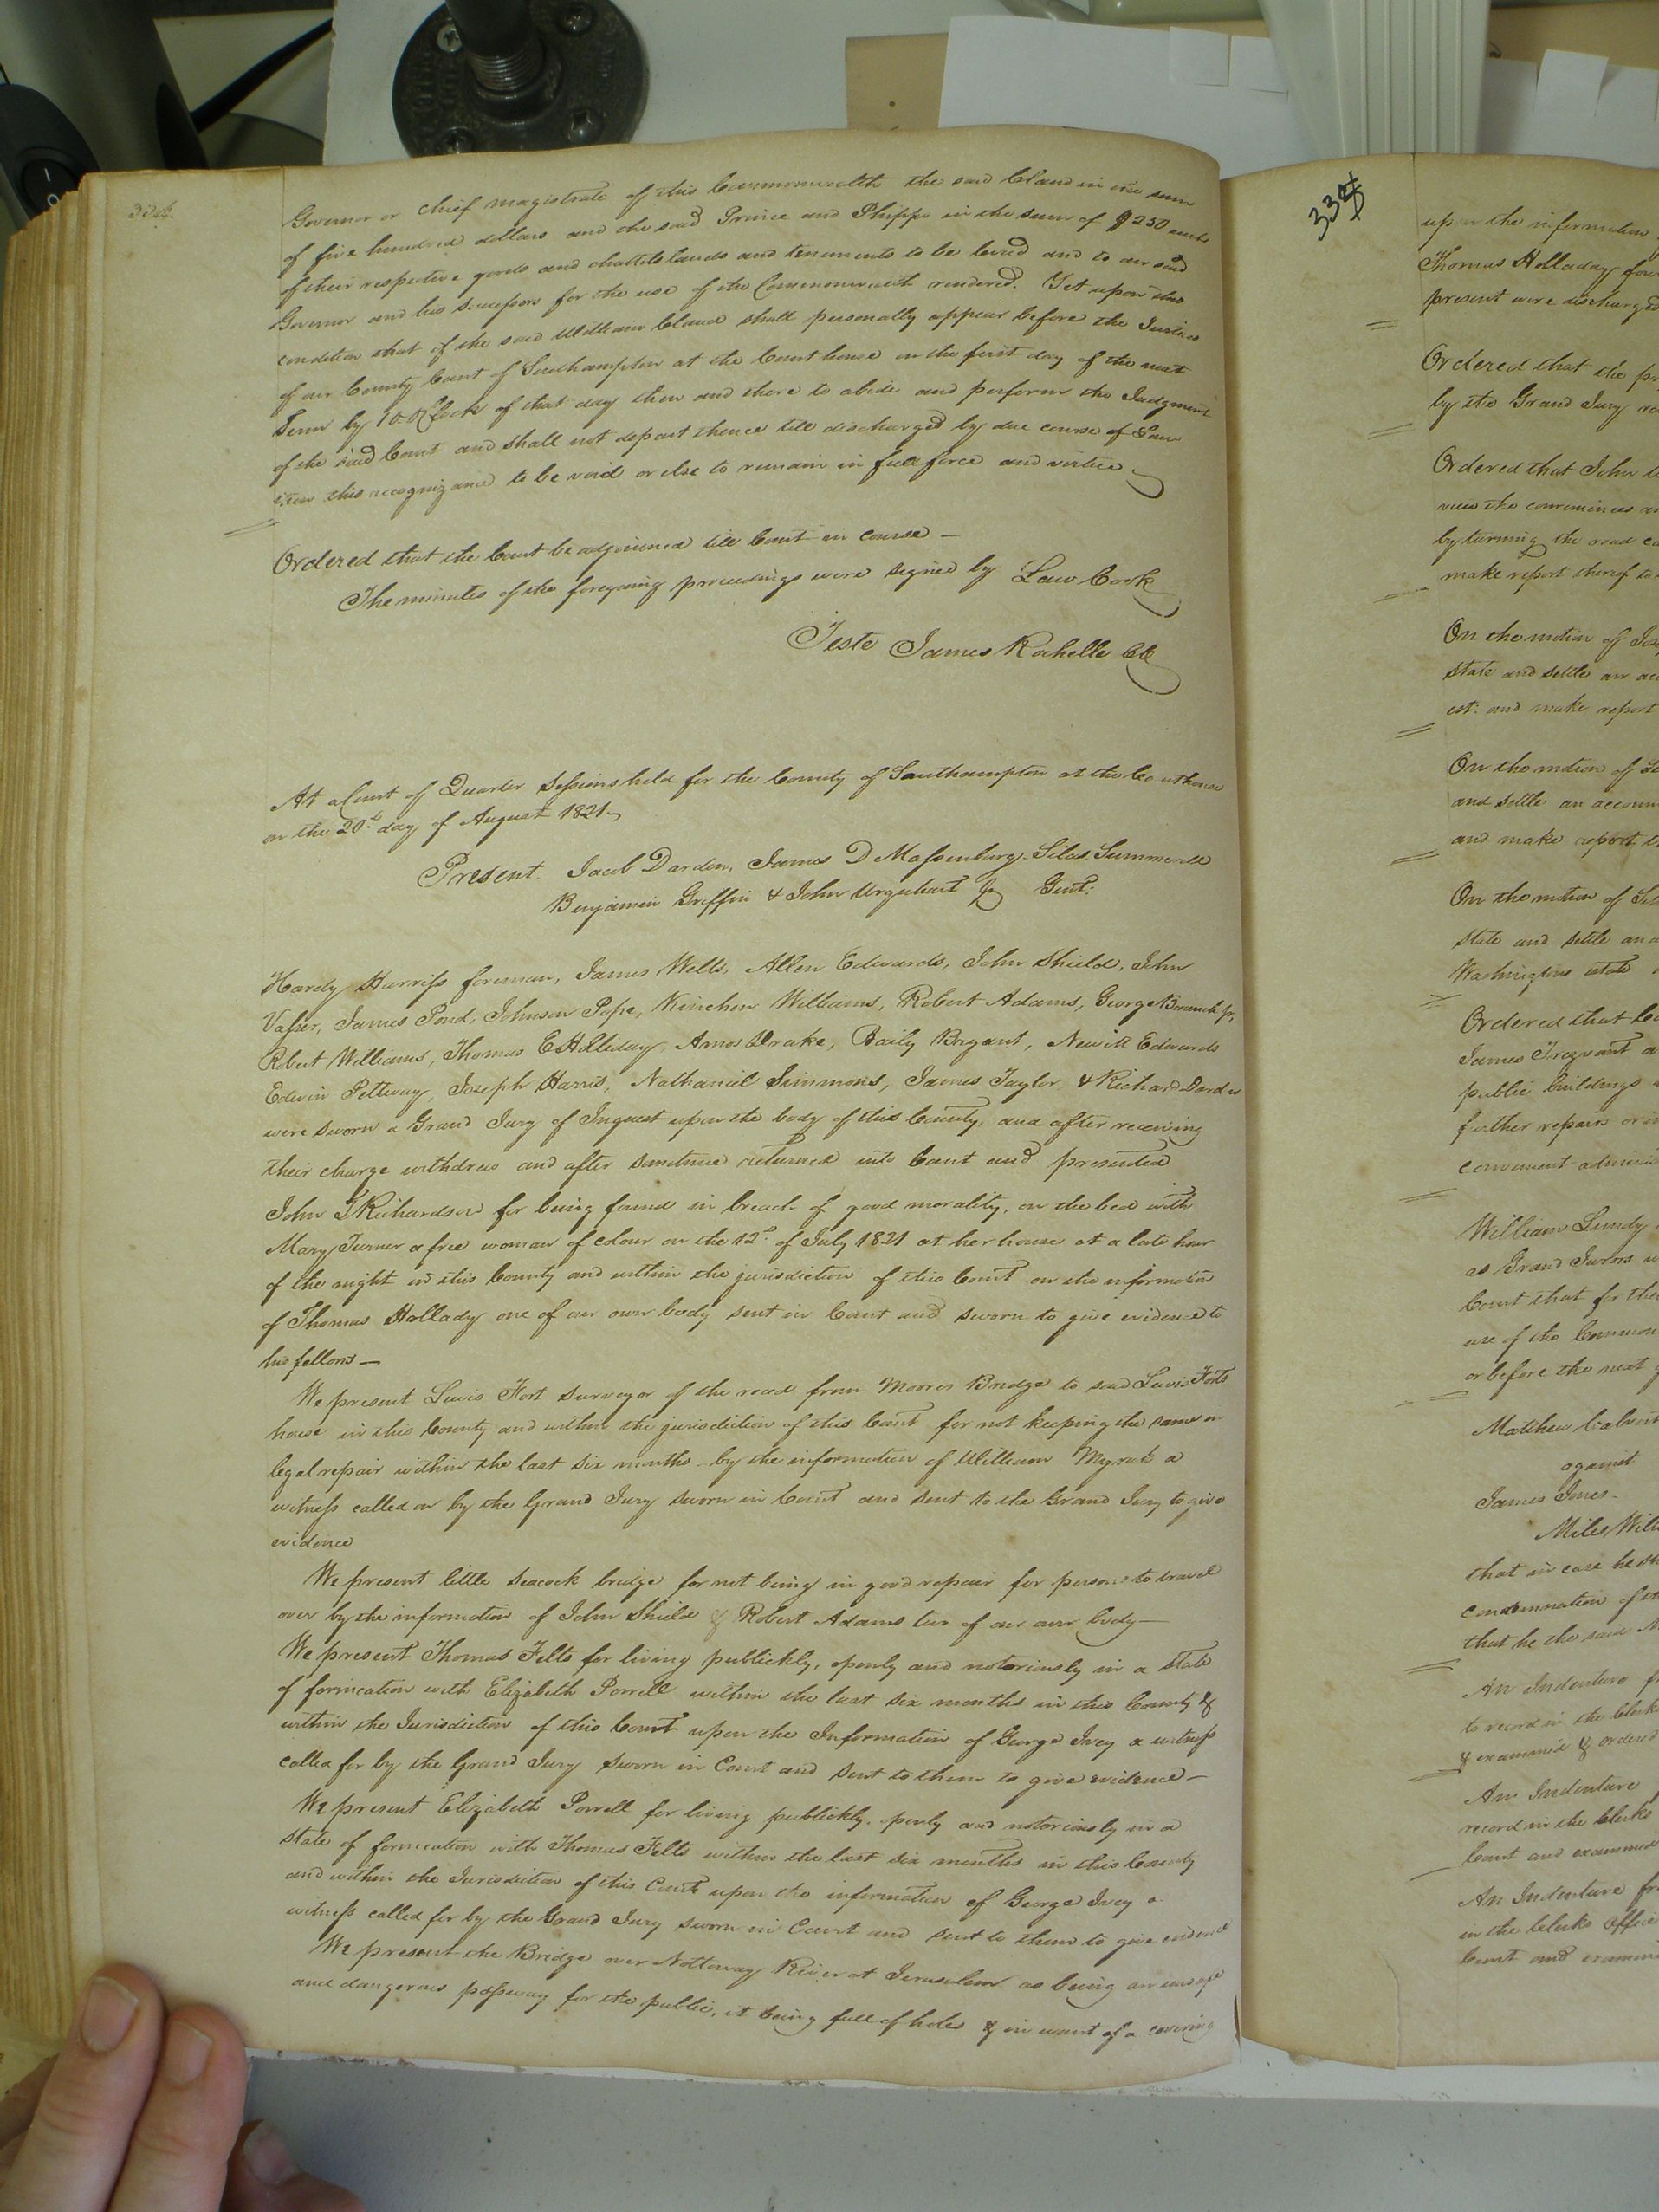 334.
Governor or chief magistrate of this Commonwealth the said Claud in the sum
of five hundred dollars and the said Prince and Phipps in the sum of $250 each
of their respective goods and chattels lands and tenements to be levied and to our said
Governor and his successors for the use of the Commonwealth rendered. Yet upon this
condition that if the said William Claud shall personally appear before the Justices
of our County Court of Southampton at the Courthouse on the first day of the next
Term by 10 OClock of that day then and there to abide and perform the Judgment
of the said Court and shall not depart thence till discharged by due course of Law
then this recognizance to be void or else to remain in full force and virtue
Ordered that the Court be adjourned till Court in course —
The minutes of the foregoing proceedings were signed by Law Cook
Teste James Rochelle Clk
At a Court of Quarter Sessions held for the County of Southampton at the Courthouse
on the 20th day of August 1821
Present. Jacob Darden, James D Massenburg, Silas Summerell
Benjamin Griffin & John Urquhart Gent:
Hardy Harriss foreman, James Wells, Allen Edwards, John Shield, John
Vasser, James Pond, Johnson Pope, Kinchen Williams, Robert Adams, George Branch Jr,
Robert Williams, Thomas E Holliday, Amos Drake, Baily Bryant, Newitt Edwards
Edwin Pettway, Joseph Harris, Nathaniel Simmons, James Taylor, & Richard Darden
were sworn a Grand Jury of Inquest upon the body of this County, and after receiving
their charge withdrew and after sometime returned into Court and presented
John T Richardson for being found in breach of good morality, on the bed with
Mary Turner a free woman of colour on the 12th of July 1821 at her house at a late hour
of the night in this County and within the jurisdiction of this Court on the information
of Thomas Holladay one of our own body sent in Court and sworn to give evidence to
his fellows —
We present Lewis Fort surveyor of the road from Moores Bridge to said Lewis Forts
house in this County and within the jurisdiction of this Court for not keeping the same in
legal repair within the last six months by the information of William Myrick a
witness called on by the Grand Jury sworn in Court and sent to the Grand Jury to give
evidence
We present little Seacock bridge for not being in good repair for persons to travel
over by the information of John Shield & Robert Adams two of our own body —
We present Thomas Felts for living publickly, openly and notoriously in a state
of fornication with Elizabeth Powell within the last six months in this County &
within the Jurisdiction of this Court upon the Information of George Ivey a witness
called for by the Grand Jury sworn in Court and sent to them to give evidence —
We present Elizabeth Powell for living publickly, openly and notoriously in a
state of fornication with Thomas Felts within the last six months in this County
and within the Jurisdiction of this Court upon the information of George Ivey a
witness called for by the Grand Jury sworn in Court and sent to them to give evidence
We present the Bridge over Nottoway River at Jerusalem as being an unsafe
and dangerous passway for the public, it being full of holes & in want of a covering
upon the information
Thomas Holladay
present were discharged
Ordered that the
by the Grand Jury
Ordered that John
view the conveniences
by turning the road
make report thereof to
On the motion of
state and settle an
est: and make report
On the motion of
and settle an account
and make report
On the motion of
state and settle an
Washington estate
Ordered that
James Trezvant
public buildings
further repairs or
convenient
William Lundy
as Grand Jurors
Court that for
use of the Common
or before the next
Matthew Calvert
against
James Jones
Miles
that in case he
condemnation of
that he the said
An Indenture
to record in the Clerks
& examined & ordered
An Indenture
record in the Clerks
Court and examined
An Indenture
in the Clerks Office
Court and